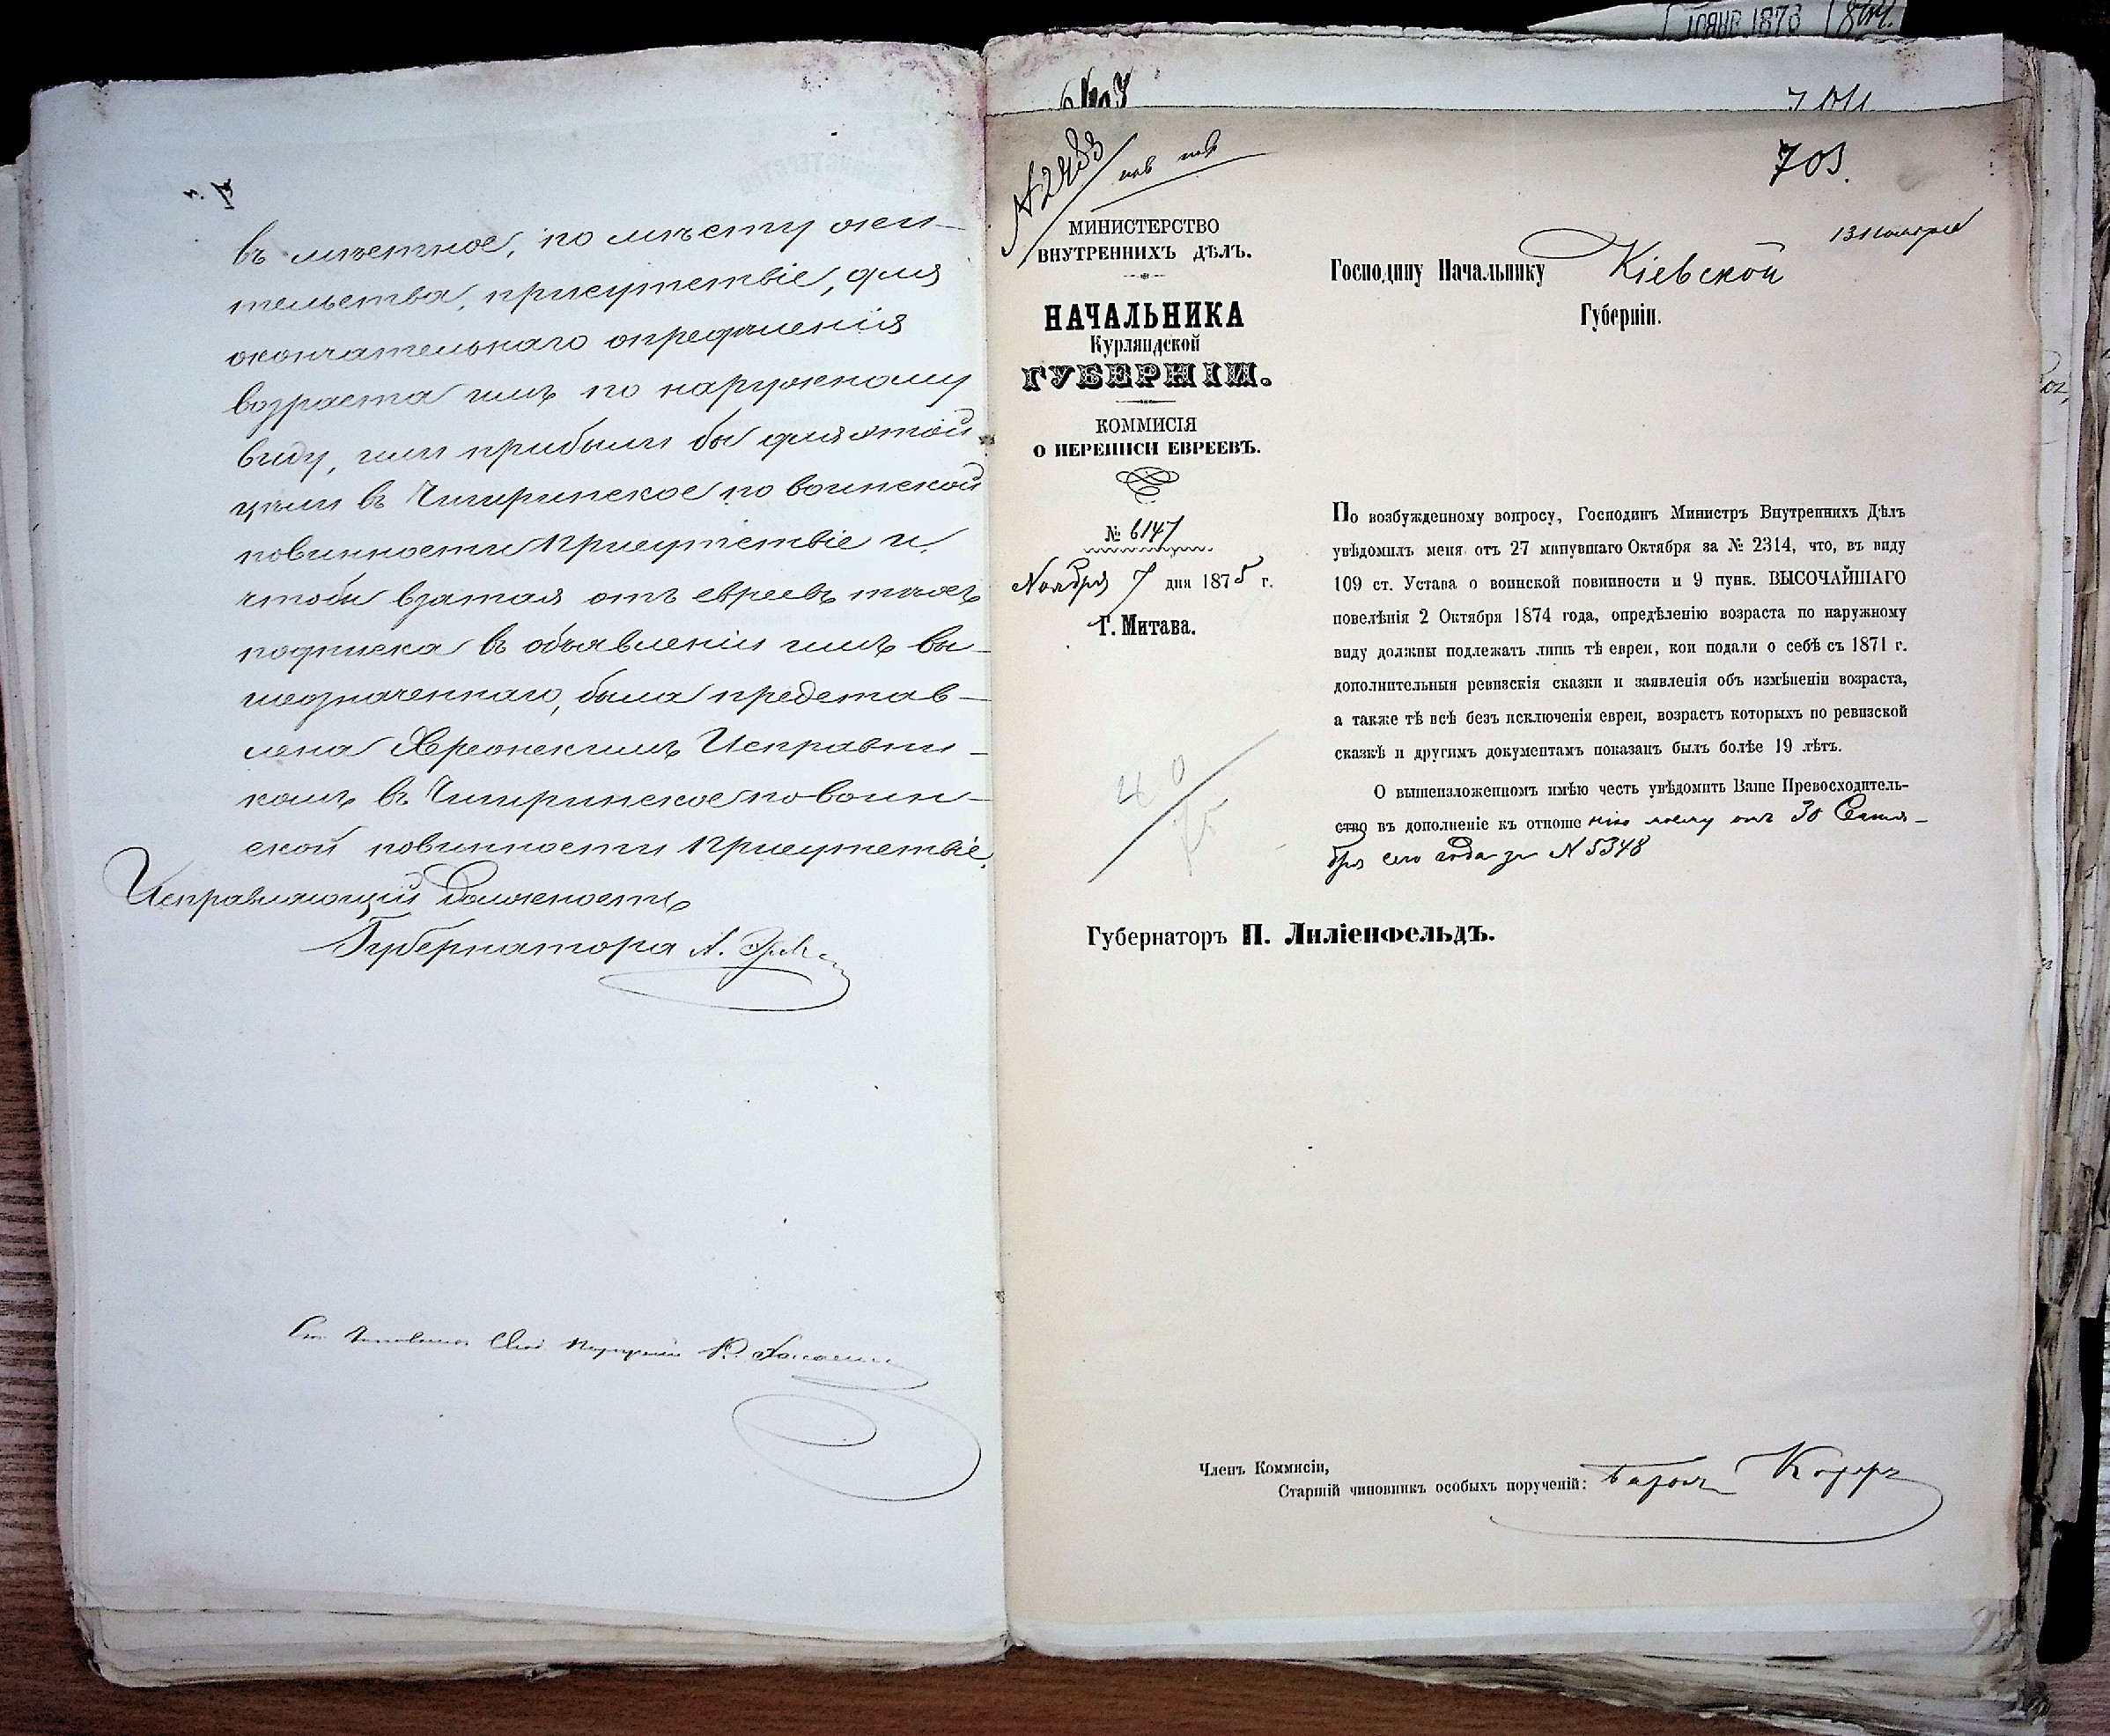 въ мѣстное, по мѣсту жи-
тельства, присутствіе, для
окончательнаго опредѣленія
возраста имъ по наружному
виду, или прибыли бы для этой
цѣли въ Чигиринское по воинской
повинности Присутствіе и
чтобы взятая отъ евреевъ
подписка въ объявленіи имъ вы-
шеозначеннаго, была представ-
лена Херсонскимъ Исправни-
комъ въ Чигиринское по воин-
ской повинности Присутствіе.
Исправляющій должность
Губернатора А.
1873
703.
13 Ноября
МИНИСТЕРСТВО
ВНУТРЕННИХЪ ДѢЛЪ.
НАЧАЛЬНИКА
Курляндской
ГУБЕРНІИ.
КОММИСІЯ
О ПЕРЕПИСИ ЕВРЕЕВЪ.
№ 6147
Ноября 7 дня 1875 г.
Г. Митава.
Господину Начальнику Кіевской
Губерніи.
По возбужденному вопросу, Господинъ Министръ Внутреннихъ Дѣлъ
увѣдомилъ меня отъ 27 минувшаго Октября за № 2314, что, въ виду
109 ст. Устава о воинской повинности и 9 пунк. ВЫСОЧАЙШАГО
повелѣнія 2 Октября 1874 года, опредѣленію возраста по наружному
виду должны подлежать лишь тѣ евреи, кои подали о себѣ съ 1871 г.
дополнительныя ревизскія сказки и заявленія объ измѣненіи возраста,
а также тѣ всѣ безъ исключенія евреи, возрастъ которыхъ по ревизской
сказкѣ и другимъ документамъ показанъ былъ болѣе 19 лѣтъ.
О вышеизложенномъ имѣю честь увѣдомить Ваше Превосходитель-
ство въ дополненіе къ отношенію моему отъ 30 Сентя-
бря сего года за № 5348
Губернаторъ П. Лиліенфельдъ.
Членъ Коммисіи,
Старшій чиновникъ особыхъ порученій: Баронъ